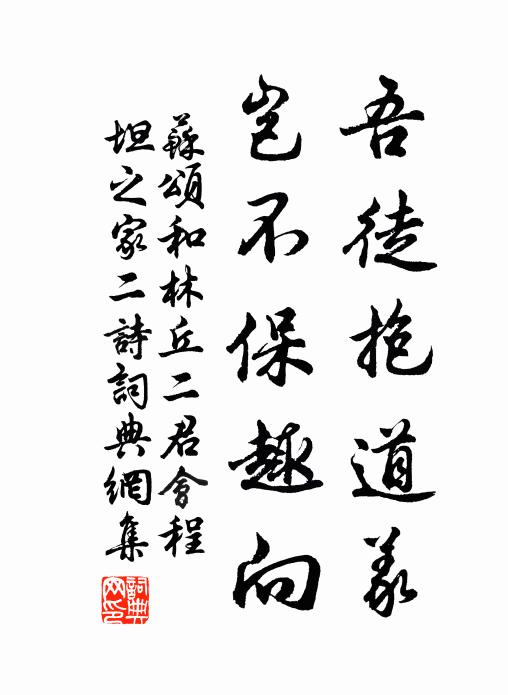 吾徒抱道義
豈不保趣向
蘇頌和林丘二君會程
坦之家二詩詞典網集
詞典
网印